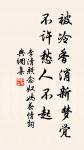 被冷香消新梦觉
不许愁人不起
李清照念奴娇春情词
典阙集